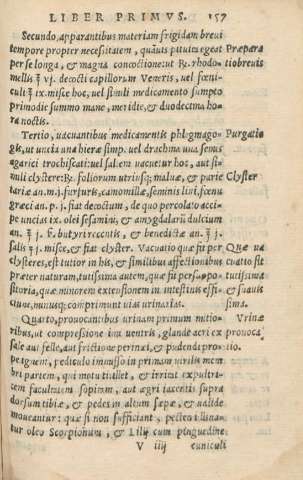 LIBER PRIMVS. 157
Secundo, apparantibus materiam frigidam breui
tempore propter necessitatem, quāuis pituita egeat
per se longa, & magna concoctione: ut R. rhodo-
mellis ℥ vj. decocti capillorum Veneris, uel fœni-
culi ℥ ix. misce hoc, uel simili medicamento sumpto
primo die summo mane, meridie, & duodecima ho-
ra noctis.
Tertio, uacuantibus medicamentis phlegmago-
gis, ut uncia una hieræ simp. uel drachma una semis
agarici trochiscati: uel saltem uacuetur hoc, aut si-
mili clystere: R. foliorum utriusq; maluæ, & parie
tariæ an. m j. furfuris, camomillæ, seminis lini, fœnu
græci an. p. j. fiat decoctum, de quo percolato acci-
pe uncias ix. olei sesamini, & amygdalarū dulcium
an. ℥ j. butyri recentis, & benedictæ an. ℥ j.
salis misce, & fiat clyster. Vacuatio quæ fit per
clysteres, est tutior in his, & similibus affectionibus
præter naturam, tutissima autem, quæ fit per suppo-
sitoria, quæ minorem extensionem in intestinis effi-
ciunt, minusq; comprimunt uias urinarias.
Quarto, prouocantibus urinam primum mitio-
ribus, ut compressione imi uentris, glande acri ex
sale aut felle, aut frictione perinæi, & pudendi pro-
pe ignem, pediculo immisso in primum uirilis mem
bri partem, qui motu titillet, & irritet expultri-
cem facultatem sopitam, aut ægri iacentis supra
dorsum tibiæ, & pedes in altum sæpe, & ualide
moueantur: quæ si non sufficiant, pecten illina-
tur oleo Scorpionum, & Lilij cum pinguedine
V iiij cuniculi
Præpara
tio breuis
Purgatio
Clyster
Quæ ua
cuatio sit
tutissima
& suauis
sima.
Vrinæ
prouoca
tio.